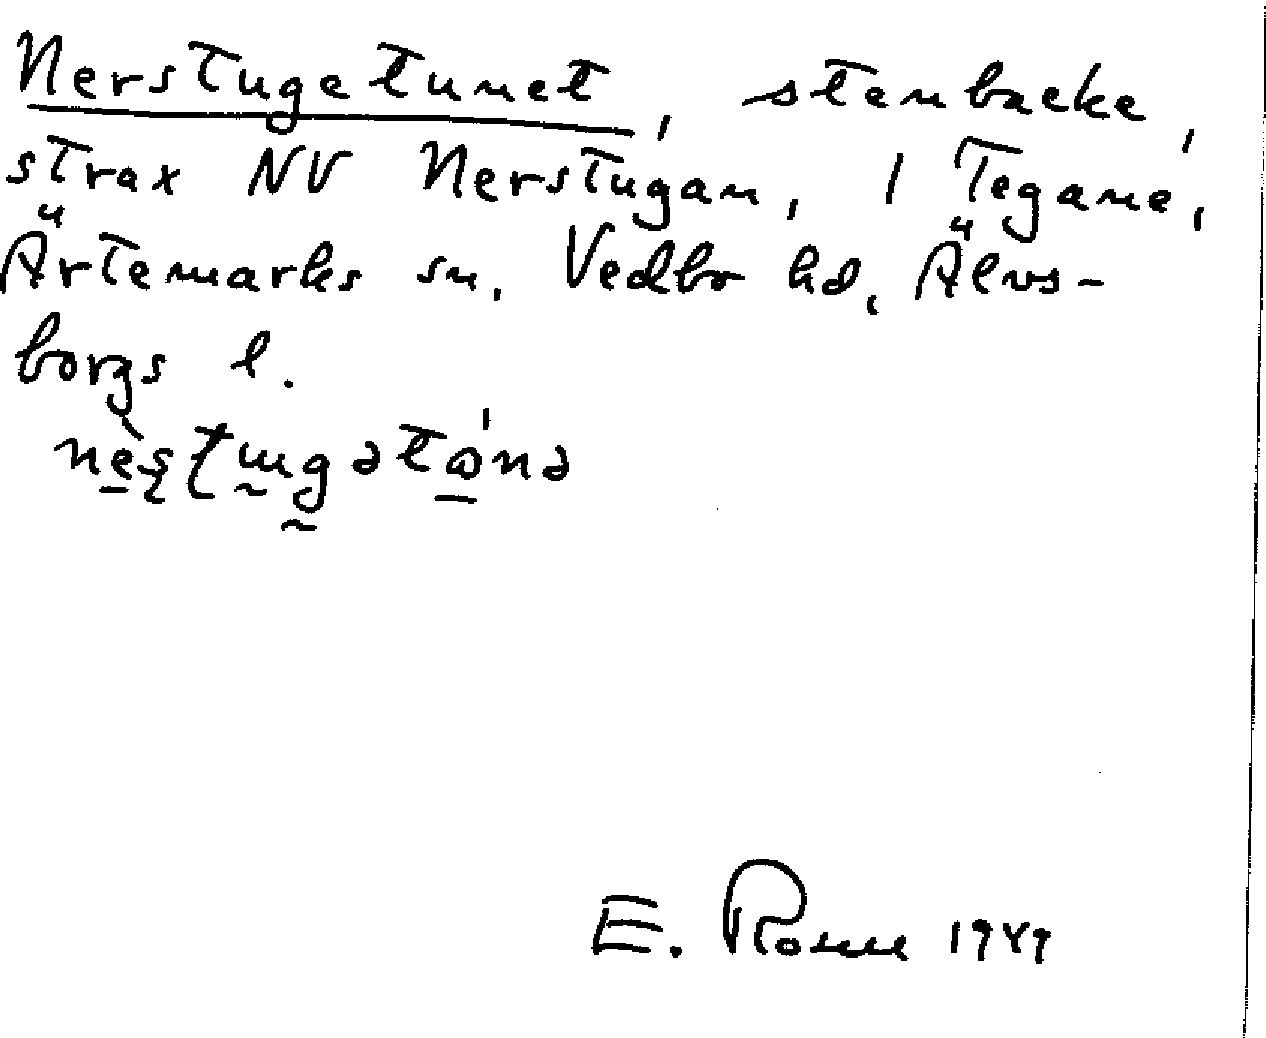 Nerstugetunet, stenbacke,
strax NV Nerstugan, 1 Tegane,
Ärtemarks sn, Vedbo hd, Älvs-
borgs l.
E. Rosell 1949